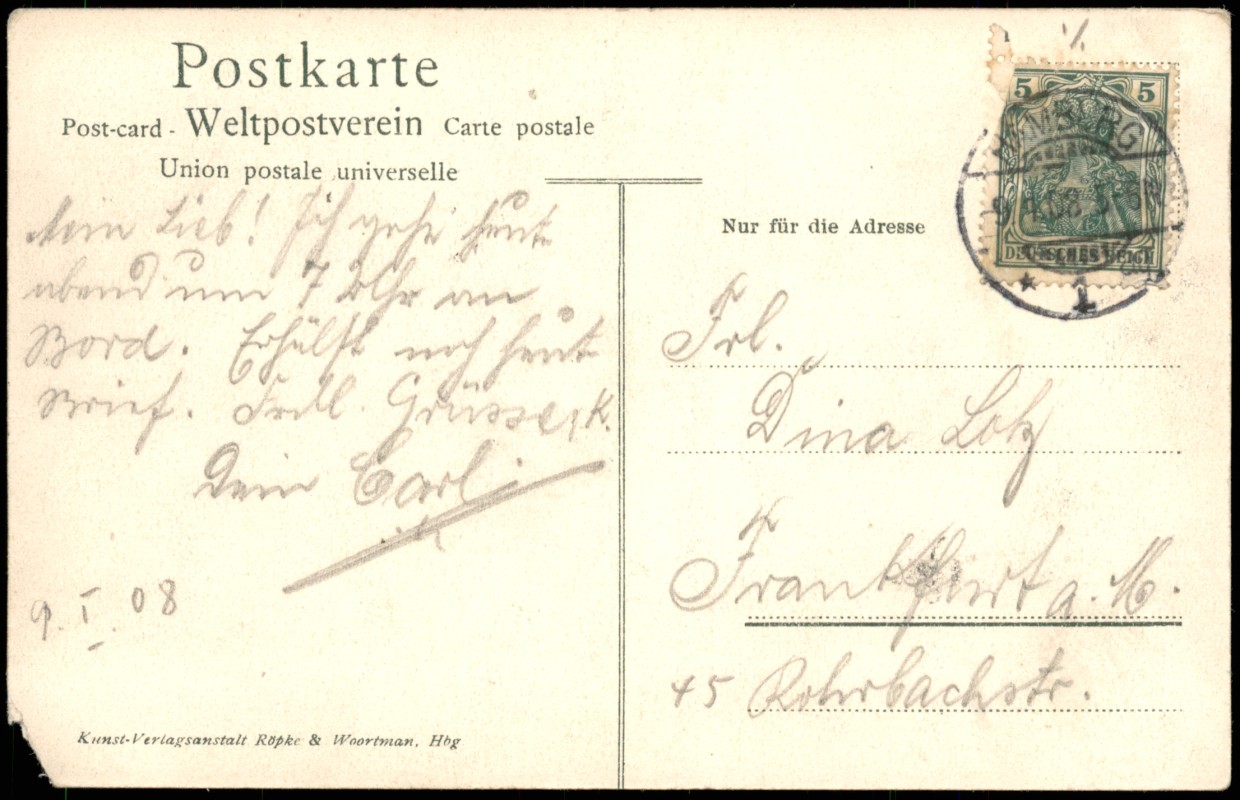 Postkarte
Post-card - Weltpostverein Carte postale
Union postale universelle
Nur für die Adresse
5 5
HAMBURG
9.1.08 5-6N
1
DEUTSCHES REICH
Mein Lieb! Ich gehe heute
abend um 7 Uhr an
Bord. Erhälst noch heute
Brief. Frdl. Grüsse, K.
Dein Carl
9. I. 08
Frl.
Dina Lotz
Frankfurt a. M.
45 Rohrbachstr.
Kunst-Verlagsanstalt Röpke & Woortman, Hbg